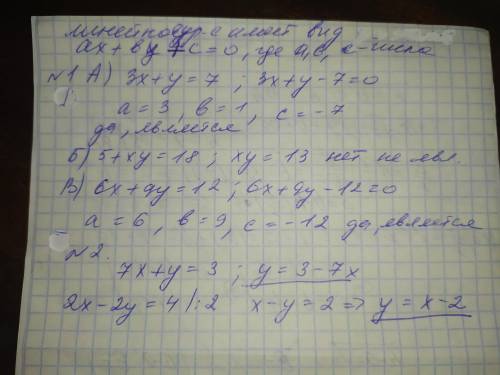 имеет вид
ax + by + c = 0, где a, b, c - числа
№1 А) 3x + y = 7 ; 3x + y - 7 = 0
a = 3, b = 1, c = -7
да, является
Б) 5 + xy = 18 ; xy = 13 нет не явл.
В) 6x + 9y = 12 ; 6x + 9y - 12 = 0
a = 6, b = 9, c = -12 да, является
№2.
7x + y = 3 ; y = 3 - 7x
2x - 2y = 4 |:2 x - y = 2 => y = x - 2